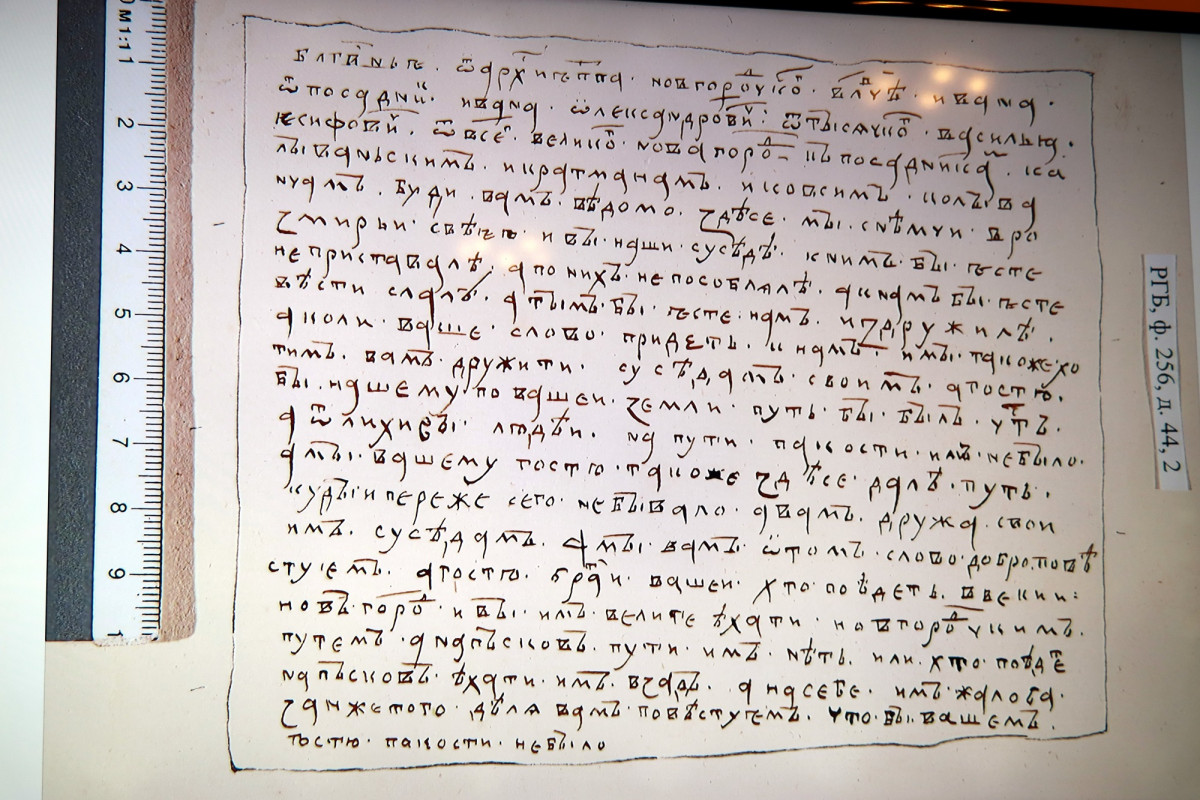 блгв҃ньѥ · ѿ арх҃иеппа · новгороц҃ко · влч҃ѣ · ивана ·
ѿ посадни · ивана · ѡлександрови · ѿ тысяцко · василья ·
ѥсифови · ѿ все · велико · новагоро · къ посаднико · ка
лываньскимъ · и кратманамъ · и ко всимъ · колыва
нцамъ · буди · вамъ · вѣдомо · здѣсе · мы · с нѣмци · вро
змирьи · свѣѥ · и вы · наши · сусѣдѣ · к нимъ · бы · есте
не приставалѣ · а по нихъ · не пособлялѣ · а к намъ бы · есте
вѣсти слалѣ · а тымъ · бы · есте · намъ · издружилѣ ·
а коли · ваше · слово · придеть · к намъ · и мы · такоже хо
тимъ · вамъ · дружити · сусѣдамъ · своимъ · а гостю ·
бы · нашему · по вашеи · земли · путь · бы · былъ · цтъ ·
а ѿ лихихъ · людѣи · на пути · пакости · имъ · не было ·
а мы · вашему гостю · такоже здѣсе · далѣ · путь ·
куды и переже сего · не бывало · а вамъ · дружа · свои
имъ · сусѣдамъ · а мы · вамъ · ѿ томъ · слово · добро · повѣ
стуемъ · а гостю · браи · вашеи · хто поѣдеть · в векии :
новъгоро · и вы · имъ · велите ѣхати · новгороцкимъ ·
путемъ · а на пьсковъ · пути · имъ · нѣтъ · или · хто поѣдѣ
на пьсковъ · ѣхати · имъ · взадь · а на себе · имъ · жалоба ·
зан же того · дѣля вамъ · повѣстуемъ · что · бы вашемъ ·
гостю · пакости · не было
РГБ, ф. 256, д. 44, 2
М 1:1
1
2
3
4
5
6
7
8
9